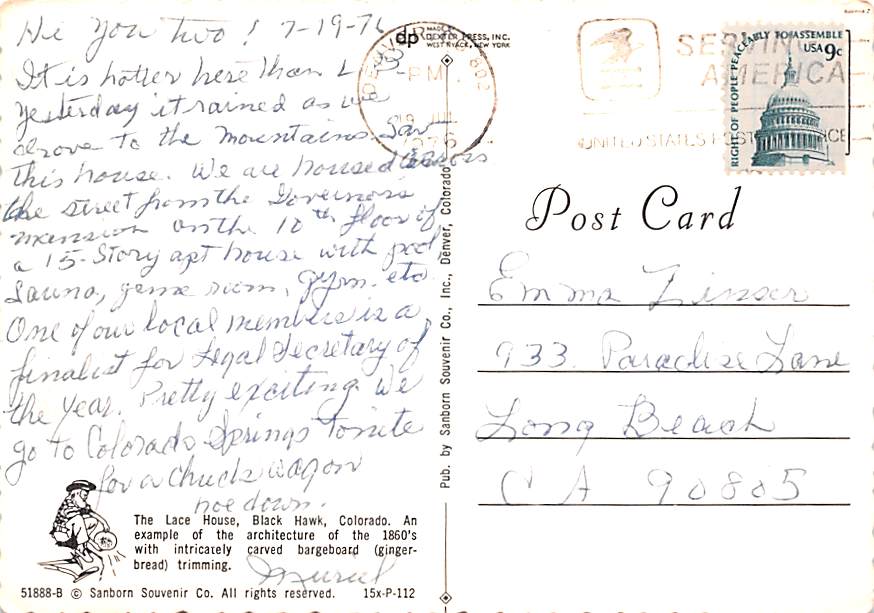 Hi You two! 7-19-76
It is hotter here than L B
Yesterday it rained as we
drove to the mountains. Saw
this house. We are housed across
the street from the Governor's
mansion on the 10th floor of
a 15-Story apt house with pool,
Sauna, game room, Gym. etc.
One of our local members is a
finalist for Legal Secretary of
the Year. Pretty exciting. We
go to Colorado Springs tonite
for a Chuck wagon
hoe down.
Muriel
The Lace House, Black Hawk, Colorado. An
example of the architecture of the 1860's
with intricately carved bargeboard (ginger-
bread) trimming.
51888-B © Sanborn Souvenir Co. All rights reserved. 15x-P-112
Pub. by Sanborn Souvenir Co., Inc., Denver, Colorado
dp MADE BY DEXTER PRESS, INC.
WEST NYACK, NEW YORK
DENVER
802
PM
19 JUL
1976
SERVING
AMERICA
UNITED STATES POSTAL SERVICE
RIGHT OF PEOPLE PEACEABLY TO ASSEMBLE
USA 9c
Post Card
Emma
933 Paradise Lane
Long Beach
CA 90805